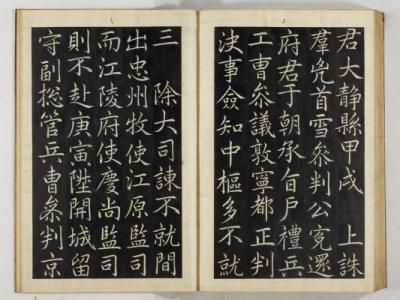 君大静縣甲戌　上誅
羣兇首雪叅判公寃還
府君于朝承旨戶禮兵
工曹叅議敦寧都正判
决事僉知中樞多不就
三　除大司諫不就間
出忠州牧使江原監司
而江陵府使慶尚監司
則不赴庚寅陞開城留
守副摠管兵曹叅判京